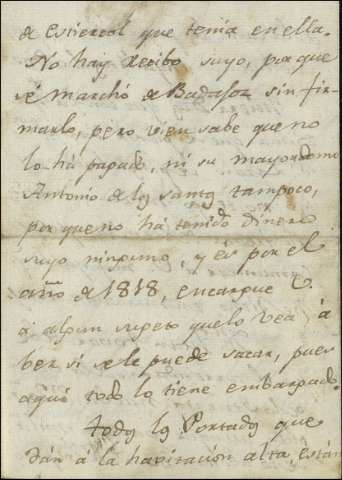 de estiercol que tenia en ella.
No hay recibo suyo, por que
sé marchó de Badajoz sin fir-
marlo, pero vien sabe que no
lo há pagado, ni su mayordomo
Antonio de los santos tampoco,
por que no há tenido dinero
suyo ninguno, y és por el
año de 1818, encargue V.
á algun sugeto que lo vea á
ber si se le puede sacar, pues
aqui todo lo tiene embargado.
Todos los Portados que
dán a la havitacion alta, están